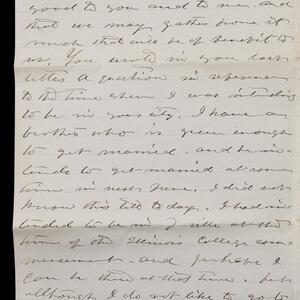 good to you and to me. and
that we may gather from it
much that will be of benefit to
us. You wrote in your last
letter a question in reference
to the time when I was intending
to be in your city. I have a
brother who is green enough
to get married - and he in-
tends to get married at some
time in next June. I did not
know this till to day. I had in-
tended to be in J'ville at the
time of the Illinois College com-
mencement - and perhaps I
can be there at that time. but
although I do not like to go to